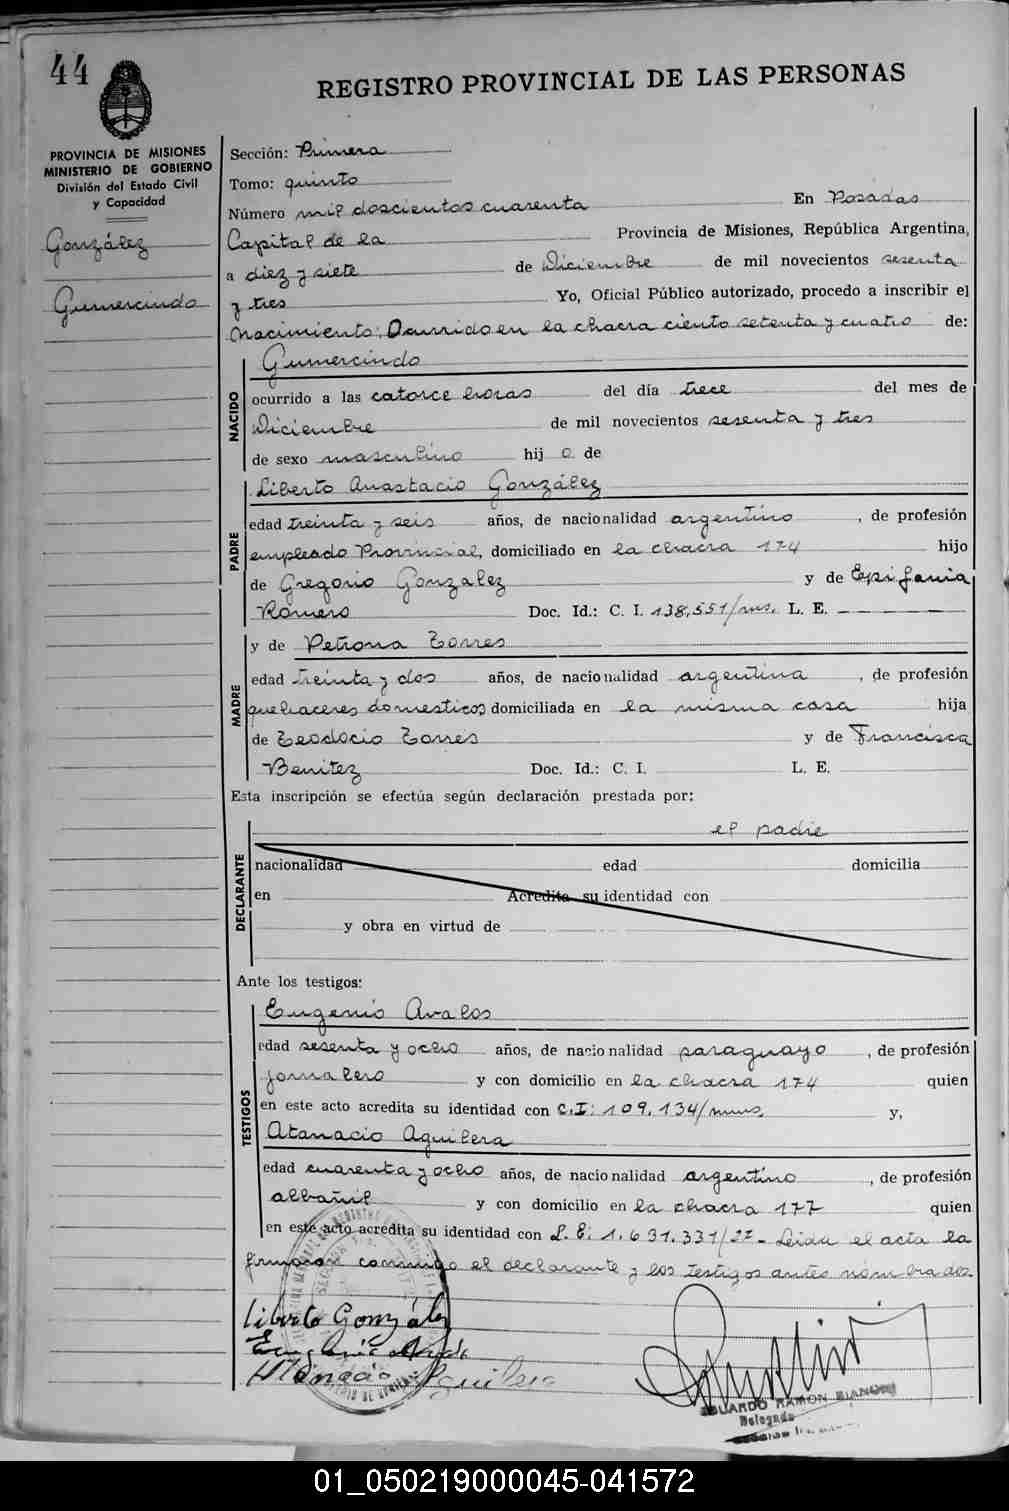 44
REGISTRO PROVINCIAL DE LAS PERSONAS
PROVINCIA DE MISIONES
MINISTERIO DE GOBIERNO
División del Estado Civil
y Capacidad
González
Gumercindo
Sección: Primera
Tomo: quinto
Número mil doscientos cuarenta En Posadas
Capital de la Provincia de Misiones, República Argentina,
a diez y siete de Diciembre de mil novecientos sesenta
y tres Yo, Oficial Público autorizado, procedo a inscribir el
Nacimiento: Ocurrido en la chacra ciento setenta y cuatro de:
NACIDO
Gumercindo
ocurrido a las catorce horas del día trece del mes de
Diciembre de mil novecientos sesenta y tres
de sexo masculino hij o de
PADRE
Liberto Anastacio González
edad treinta y seis años, de nacionalidad argentino, de profesión
empleado Provincial, domiciliado en la chacra 174 hijo
de Gregorio Gonzalez y de Epifania
Romero Doc. Id.: C. I. 138,551/ms. L. E. - - - - - - -
MADRE
y de Petrona Torres
edad treinta y dos años, de nacionalidad argentina, de profesión
quehaceres domesticos domiciliada en la misma casa hija
de Teodocio Torres y de Francisca
Benitez Doc. Id.: C. I. L. E.
Esta inscripción se efectúa según declaración prestada por:
DECLARANTE
el padre
nacionalidad edad domicilia
en Acredita su identidad con
y obra en virtud de
Ante los testigos:
TESTIGOS
Eugenio Avalos
edad sesenta y ocho años, de nacionalidad paraguayo, de profesión
jornalero y con domicilio en la chacra 174 quien
en este acto acredita su identidad con C.I: 109.134/mnes. y,
Atanacio Aguilera
edad cuarenta y ocho años, de nacionalidad argentino, de profesión
albañil y con domicilio en la chacra 177 quien
en este acto acredita su identidad con L. E: 1.631.331/27- Leida el acta la
firmaron conmigo el declarante y los testigos antes nombrados.
Liberto González
Atanacio Aguilera
EDUARDO RAMON BIANCHI
Delegado
01_050219000045-041572